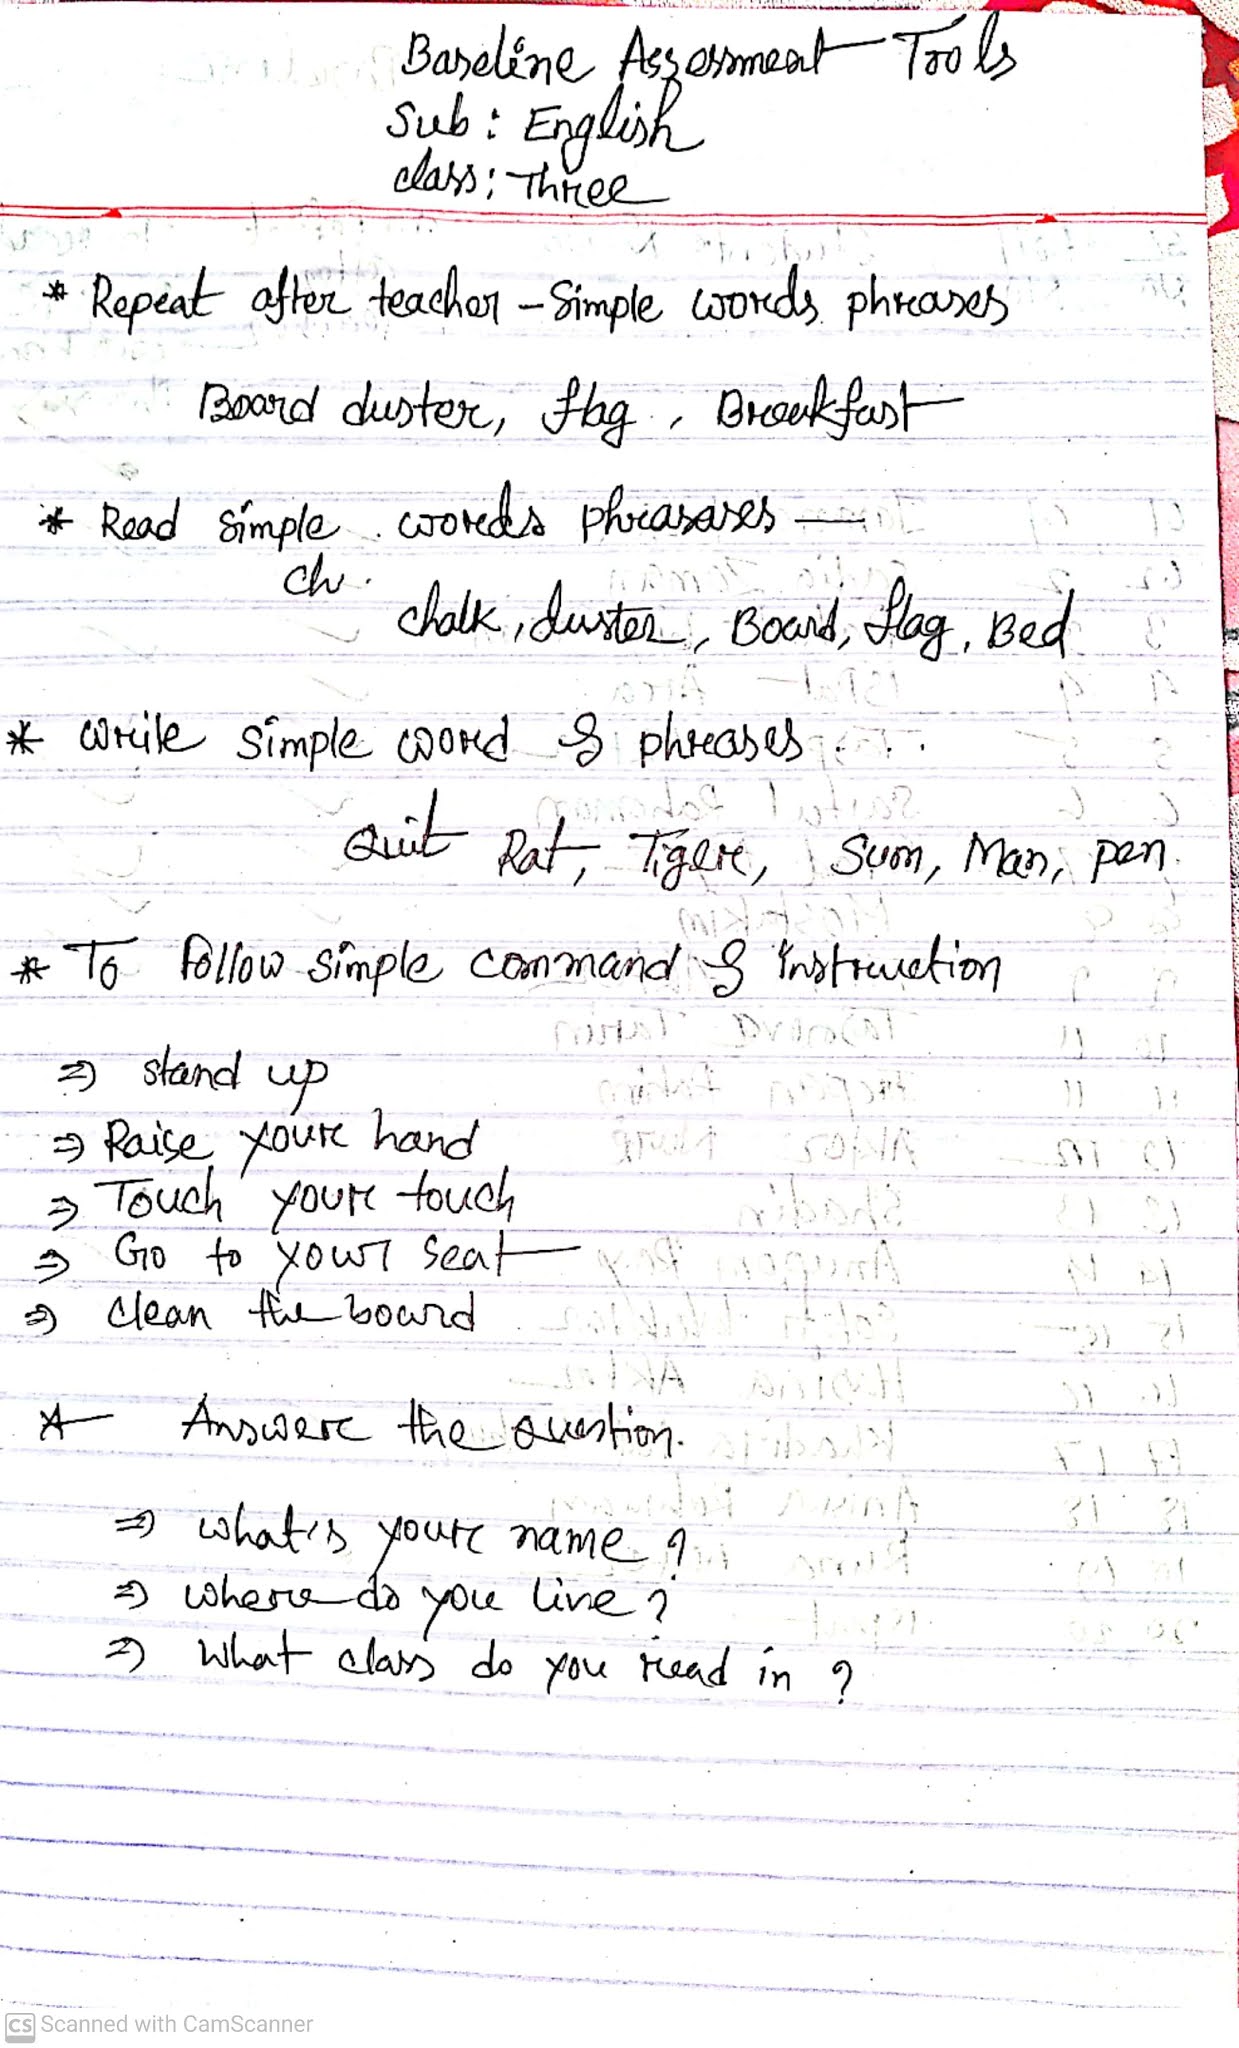 Baseline Assessment Tools
Sub : English
class : Three
* Repeat after teacher – Simple words phrases
Board duster, flag , Breakfast
* Read simple words phrasases —
ch .
chalk, duster, Board, flag, Bed
* Write simple word & phrases . . .
Quit Rat, Tiger, Sum, Man, pen.
* To follow simple command & instruction
⇒ stand up
⇒ Raise your hand
⇒ Touch your touch
⇒ Go to your seat
⇒ clean the board
* Answer the question.
⇒ what is your name ?
⇒ where do you live ?
⇒ What class do you read in ?
CS Scanned with CamScanner